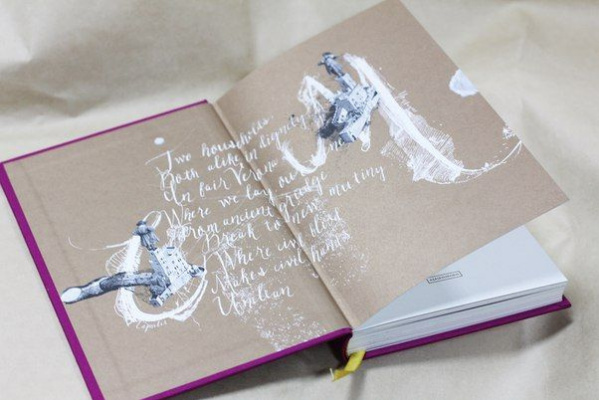 Two households,
Both alike in dignity
In fair Verona
Where we lay our
From ancient grudge
Break to new mutiny
Where civil blood
Makes civil hands
Unclean